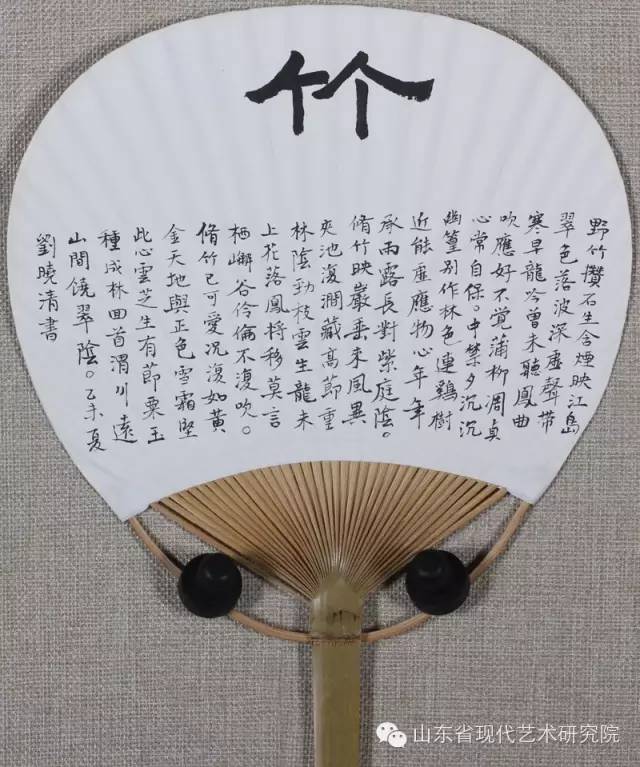 竹
野竹攢石生含煙映江島
翠色落波深虛聲帶
寒早龍吟曾未聽鳳曲
吹應好不覺蒲柳凋貞
心常自保。中禁夕沉沉
幽篁別作林色連鷄樹
近能虛應物心年年
承雨露長對紫庭陰。
脩竹映巖垂來風異
夾池復澗藏高節重
林陰勁枝雲生龍未
上花落鳳將移莫言
栖嶰谷伶倫不復吹。
脩竹已可愛況復如黃
金天地與正色雪霜堅
此心雲芝生有節粟玉
種成林回首渭川遠
山間饒翠陰。乙未夏
劉曉清書
山东省现代艺术研究院